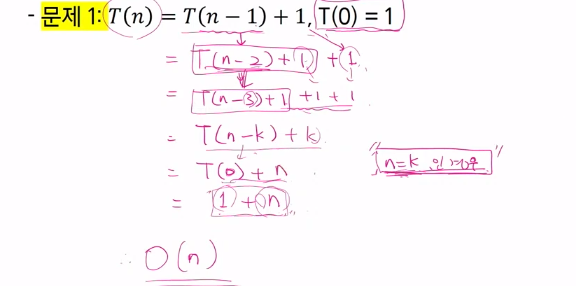 - 문제 1: T(n) = T(n − 1) + 1, T(0) = 1
= T(n-2)+1 +1
= T(n-3)+1 +1+1
= T(n-k)+k
= T(0)+n
"n=k 인 경우"
= 1+n
∴ O(n)